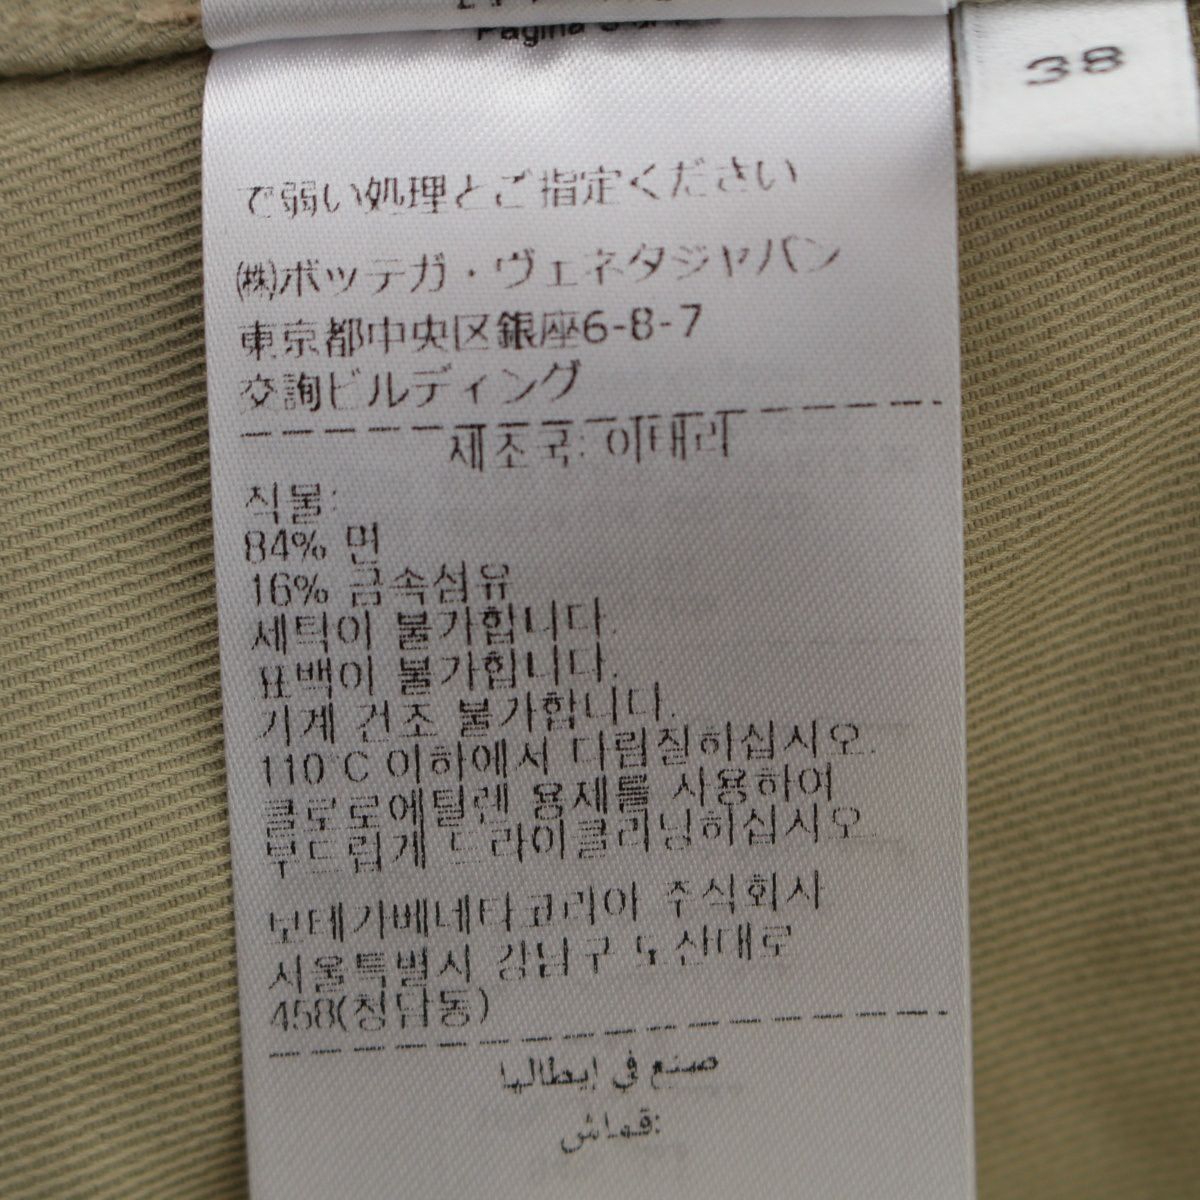 Pagina
38
で弱い処理とご指定ください
(株)ボッテガ・ヴェネタジャパン
東京都中央区銀座6-8-7
交詢ビルディング
제조국: 이태리
직물:
84% 면
16% 금속섬유
세탁이 불가합니다.
표백이 불가합니다.
기계 건조 불가합니다.
110°C 이하에서 다림질하십시오.
클로로에틸렌 용제를 사용하여
부드럽게 드라이클리닝하십시오.
보테가베네타코리아 주식회사
서울특별시 강남구 도산대로
458(청담동)
صنع في إيطاليا
قماش: